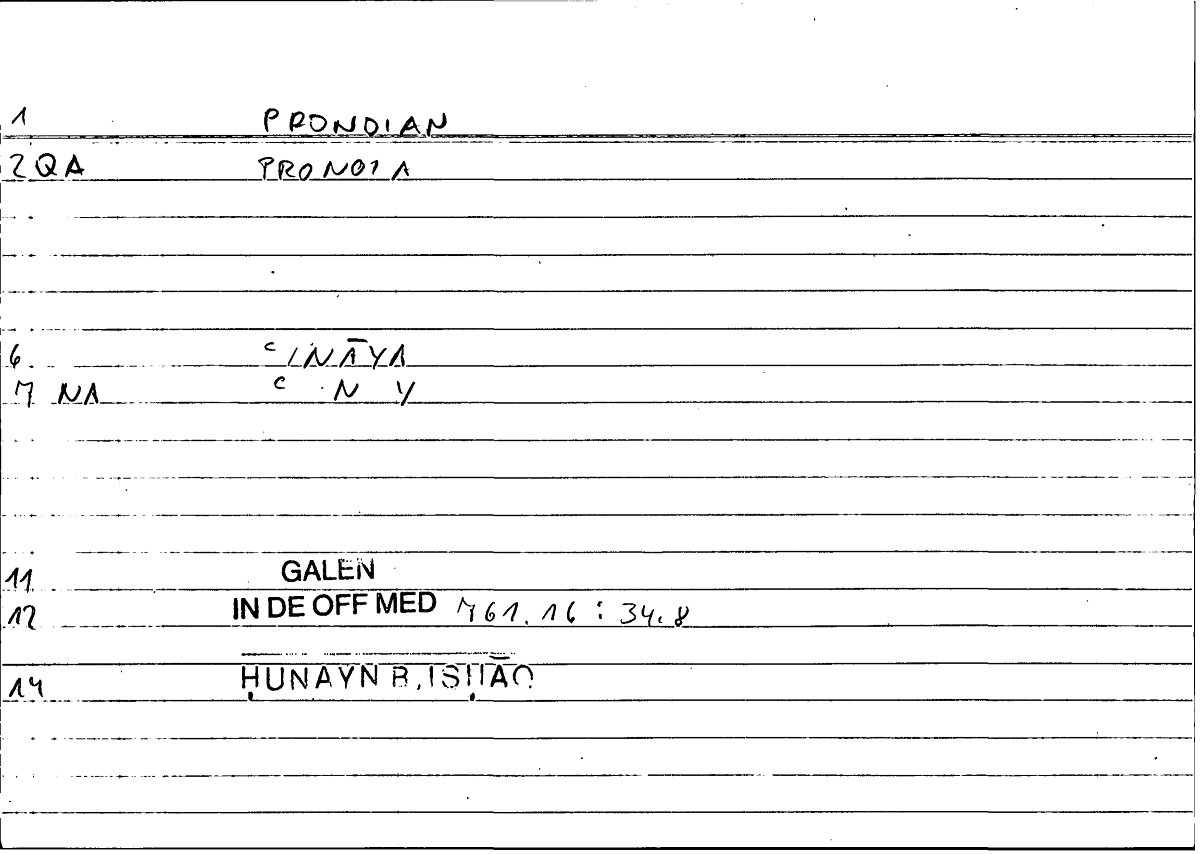 1 PRONOIAN
2 QA PRONOIA
6 ʿINĀYA
7 NA ʿ N Y
11 GALEN
12 IN DE OFF MED 761.16 : 34.8
14 ḤUNAYN B. ISḤĀQ